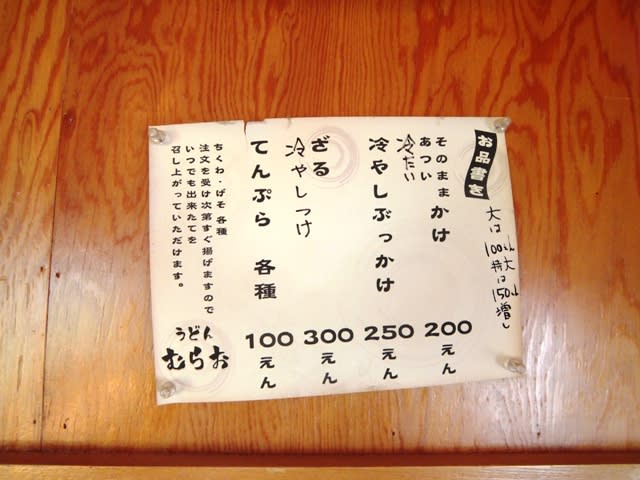 お品書き
大は100えん
特大は150えん増し
そのまま
あつい
冷たい
かけ
200えん
冷やしぶっかけ
250えん
ざる
冷やしつけ
300えん
てんぷら 各種
100えん
ちくわ・げそ 各種
注文を受け次第すぐ揚げますので
いつでも出来たてを
召し上がっていただけます。
うどん
むらお